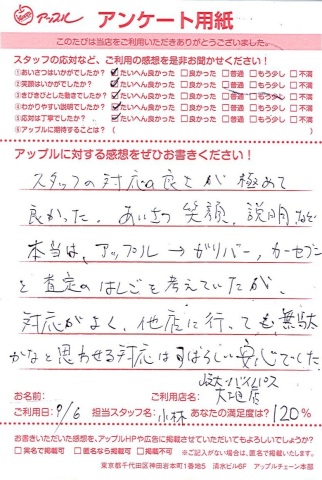 アップル アンケート用紙
このたびは当店をご利用いただきありがとうございました。
スタッフの応対など、ご利用の感想を是非お聞かせください！
①あいさつはいかがでしたか？ ☑たいへん良かった □良かった □普通 □もう少し □不満
②笑顔はいかがでしたか？ ☑たいへん良かった □良かった □普通 □もう少し □不満
③きびきびとした動きでしたか？ ☑たいへん良かった □良かった □普通 □もう少し □不満
④わかりやすい説明でしたか？ ☑たいへん良かった □良かった □普通 □もう少し □不満
⑤応対は丁寧でしたか？ ☑たいへん良かった □良かった □普通 □もう少し □不満
⑥アップルに期待することは？ （
アップルに対する感想をぜひお書きください！
スタッフの対応の良さが極めて
良かった。あいさつ 笑顔、説明など
本当は、アップル → ガリバー、カーセブン
と査定のはしごを考えていたが、
対応がよく、他店に行っても無駄
かなと思わせる対応はすばらしい安心でした
お名前： ご利用店名： バイパス大道店
ご利用日： 9/6 担当スタッフ名： 小林 あなたの満足度は？ 120%
お書きいただいた感想を、アップルHPや広告に掲載させていただいてもよろしいでしょうか？
□実名で掲載可 □匿名なら掲載可 □不可 ※ご記入がない場合は、匿名で掲載いたします。
東京都千代田区神田岩本町1番地5 清水ビル6F アップルチェーン本部